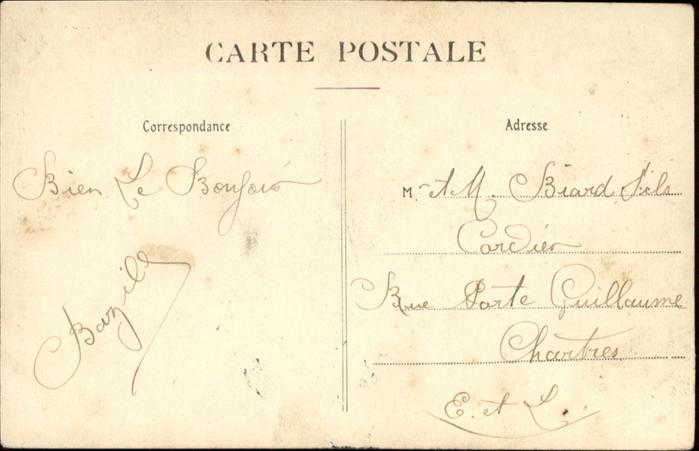 CARTE POSTALE
Correspondance
Bien Le Bonjour
Bazile
Adresse
M. A M. Biard Fils
Cordier
Rue Porte Guillaume
Chartres
E. et L.